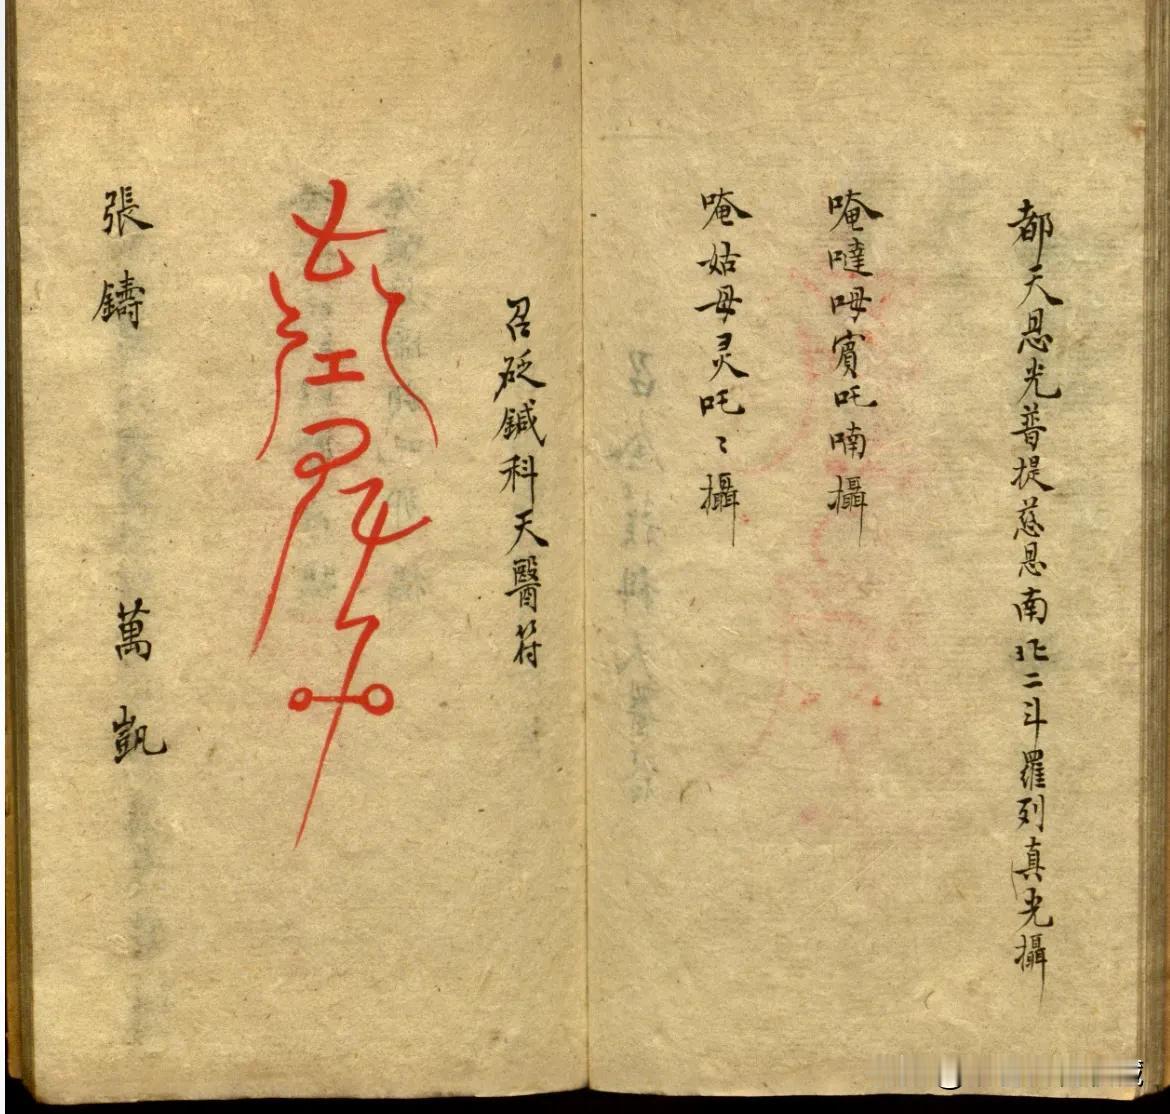 都天恩光普提慈恩南北二斗羅列真光攝
唵噠呣賓吒喃攝
唵姑母灵吒〻攝
召砭鍼科天醫符
張鑄
萬凱